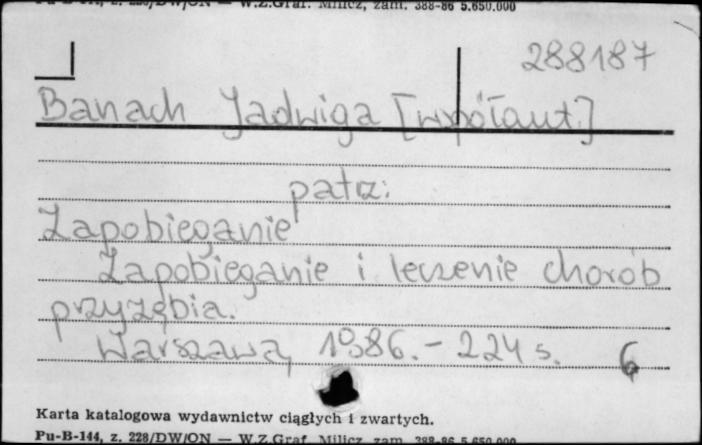 Pu-B-144, z. 228/DW/ON — W.Z.Graf. Milicz, zam. 388-86 5.650.000
288187
Banach Jadwiga [współaut.]
patrz:
Zapobieganie
Zapobieganie i leczenie chorób
przyzębia.
Warszawa, 1986. - 224 s. 6
Karta katalogowa wydawnictw ciągłych i zwartych.
Pu-B-144, z. 228/DW/ON — W.Z.Graf. Milicz, zam. 388-86 5.650.000